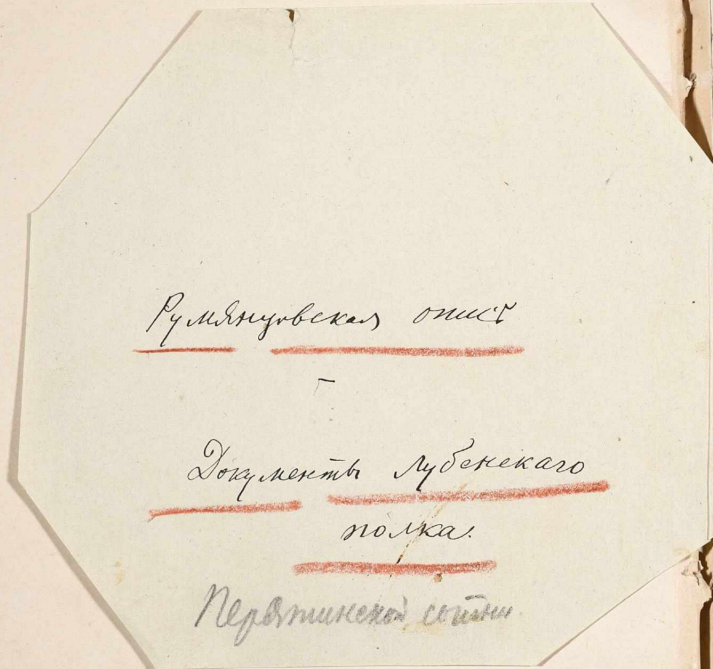 Румянцовская опись
Документы Лубенскаго
полка.
Пирятинской сотни